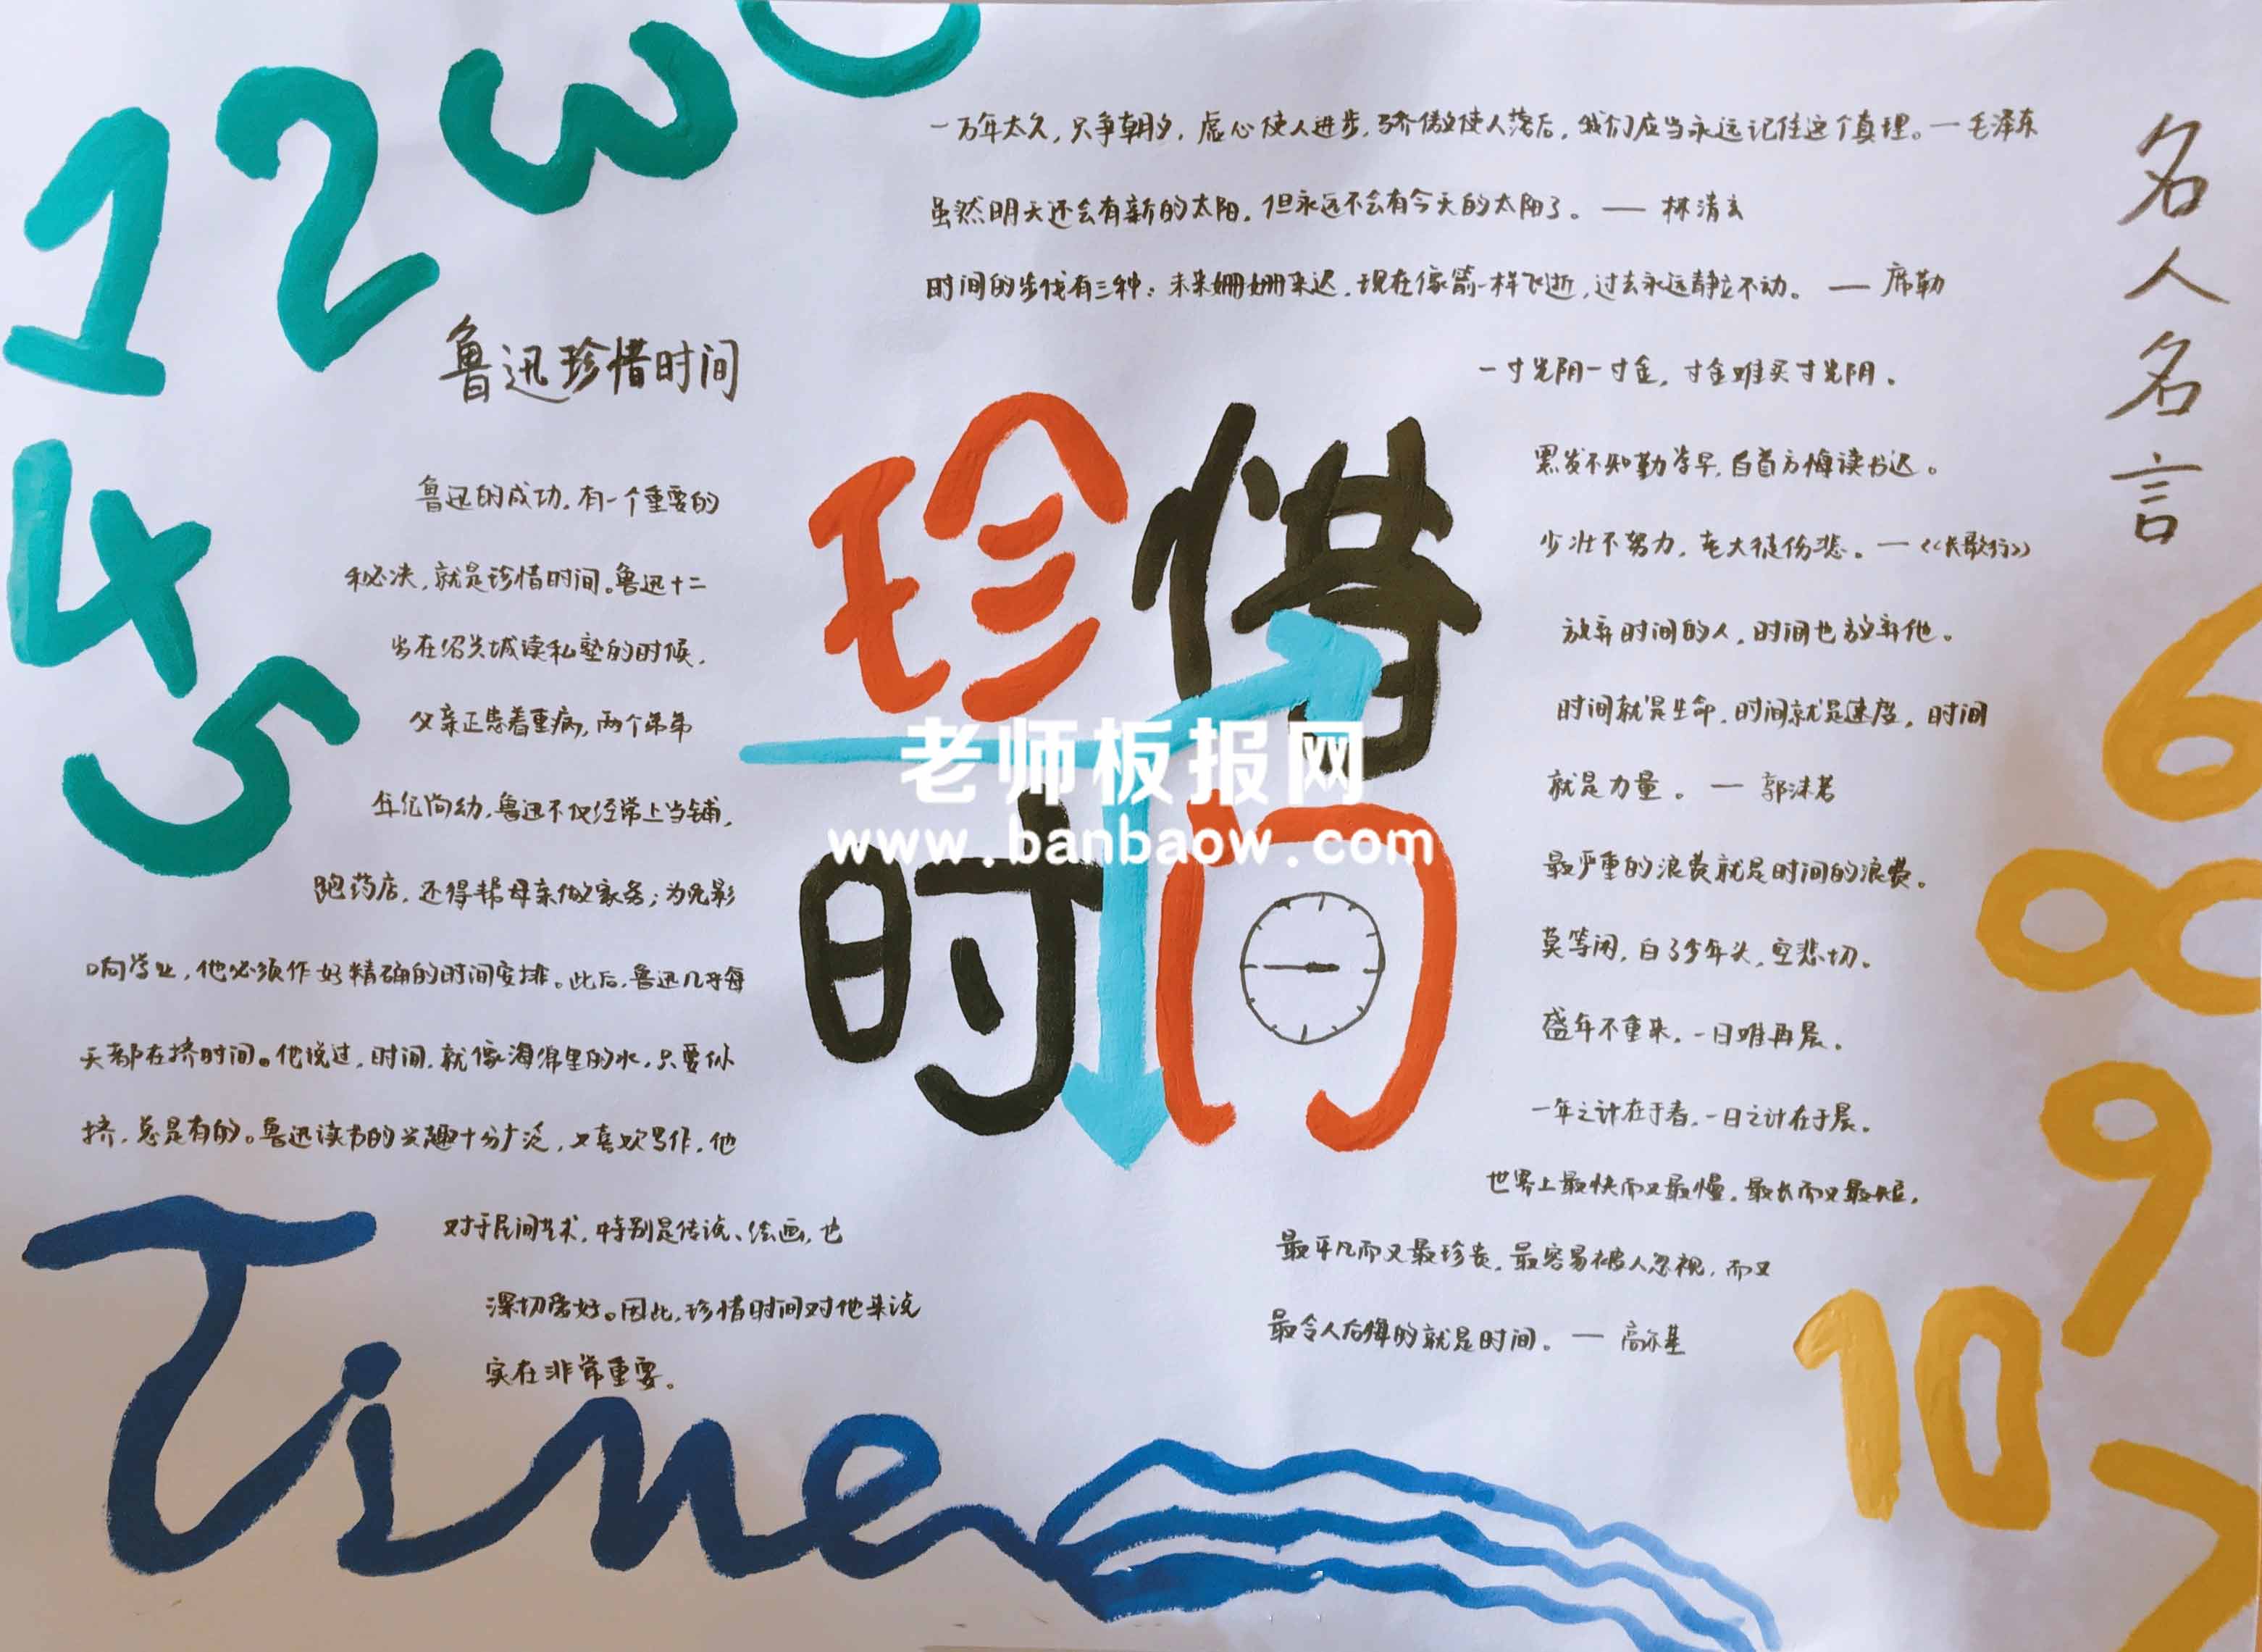 1 2 3
4
5
鲁迅珍惜时间
鲁迅的成功,有一个重要的
秘决,就是珍惜时间。鲁迅十二
岁在绍兴城读私塾的时候,
父亲正患着重病,两个弟弟
年纪尚幼,鲁迅不仅经常上当铺,
跑药店,还得帮母亲做家务;为免影
响学业,他必须作好精确的时间安排。此后,鲁迅几乎每
天都在挤时间。他说过,时间,就像海绵里的水,只要你
挤,总是有的。鲁迅读书的兴趣十分广泛,又喜欢写作,他
对于民间艺术,特别是传说、绘画,也
深切爱好。因此,珍惜时间对他来说
实在非常重要。
Time
珍惜
时间
老师板报网
www.banbaow.com
名人名言
一万年太久,只争朝夕,虚心使人进步,骄傲使人落后,我们应当永远记住这个真理。一毛泽东
虽然明天还会有新的太阳,但永远不会有今天的太阳了。——林清玄
时间的步伐有三种:未来姗姗来迟,现在像箭一样飞逝,过去永远静立不动。——席勒
一寸光阴一寸金,寸金难买寸光阴。
黑发不知勤学早,白首方悔读书迟。
少壮不努力,老大徒伤悲。—《长歌行》
放弃时间的人,时间也放弃他。
时间就是生命,时间就是速度,时间
就是力量。——郭沫若
最严重的浪费就是时间的浪费。
莫等闲,白了少年头,空悲切。
盛年不重来,一日难再晨。
一年之计在于春,一日之计在于晨。
世界上最快而又最慢,最长而又最短,
最平凡而又最珍贵,最容易被人忽视,而又
最令人后悔的就是时间。——高尔基
6
8
9
10
7